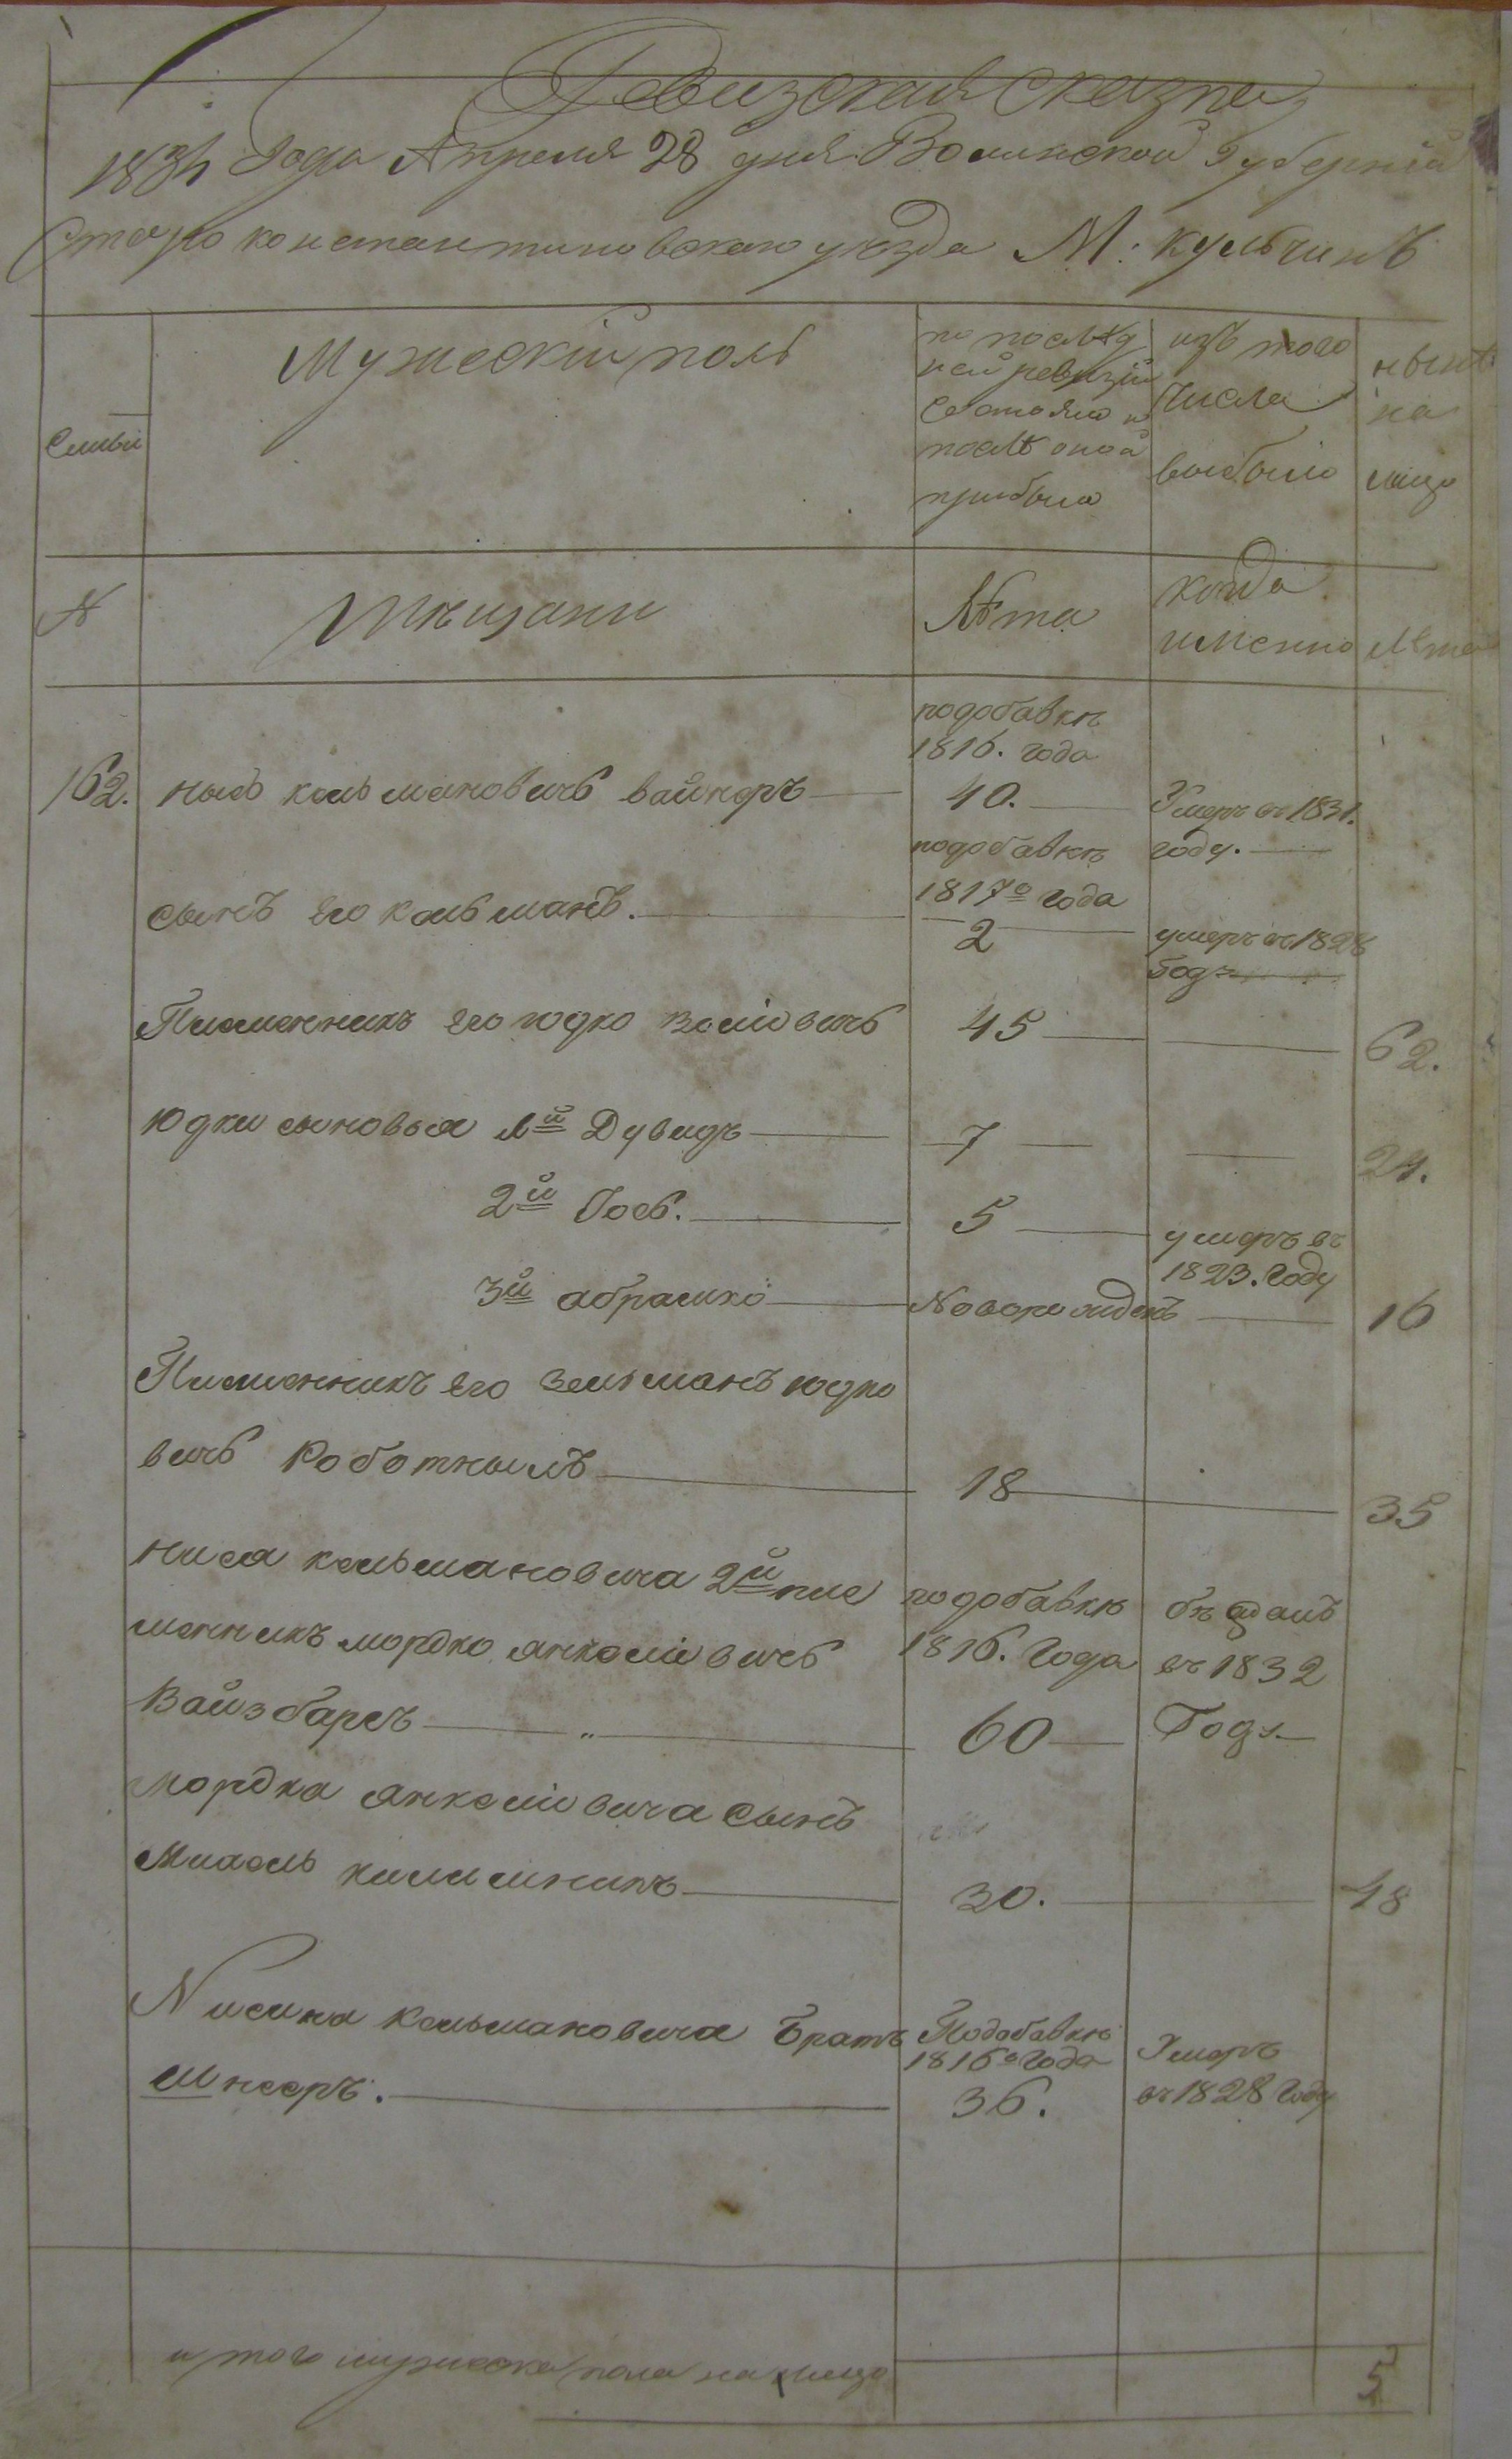 Ревизская сказка
1834 Года Апреля 28 дня Волынской Губерніи
Старо константиновскаго уѣзда М: кульчинъ
Семьи
Мужескій полъ
по послѣд
ней ревизіи
состояло и
послѣ оной
прибыло
изъ того
числа
выбыло
нынѣ
на
лицо
N
Мѣщани
Лѣта
когда
именно
лѣта
подобавкѣ
1816. года
162. нысь кельмановичь вайнеръ 40. Умеръ въ 1831.
году.
подобавкѣ
1817го года
сынъ его кельманъ. 2 умеръ въ 1828
году
Племенникъ его юдко Веліовичь 45 62.
Юдки сыновья 1й Дувидъ 7 24.
2й Іось. 5 умеръ въ
1823. году
3й абрамко Новорожденъ 16
Племенникъ его Зельманъ юдко
вичь Роботныкъ 18 35
ниса кельмановича 2й пле
менникъ мордко янкеліовичь
Вайзбаръ 60
подобавкѣ
1816. Года
въ 1832
Году
мордка янкеліовича сынъ
Михель 30. 48
Нисина Кельмановича Братъ
шнееръ.
Подобавкѣ
1816го Года
36.
Умеръ
въ 1828 Году
итого мужеска пола на лицо 5